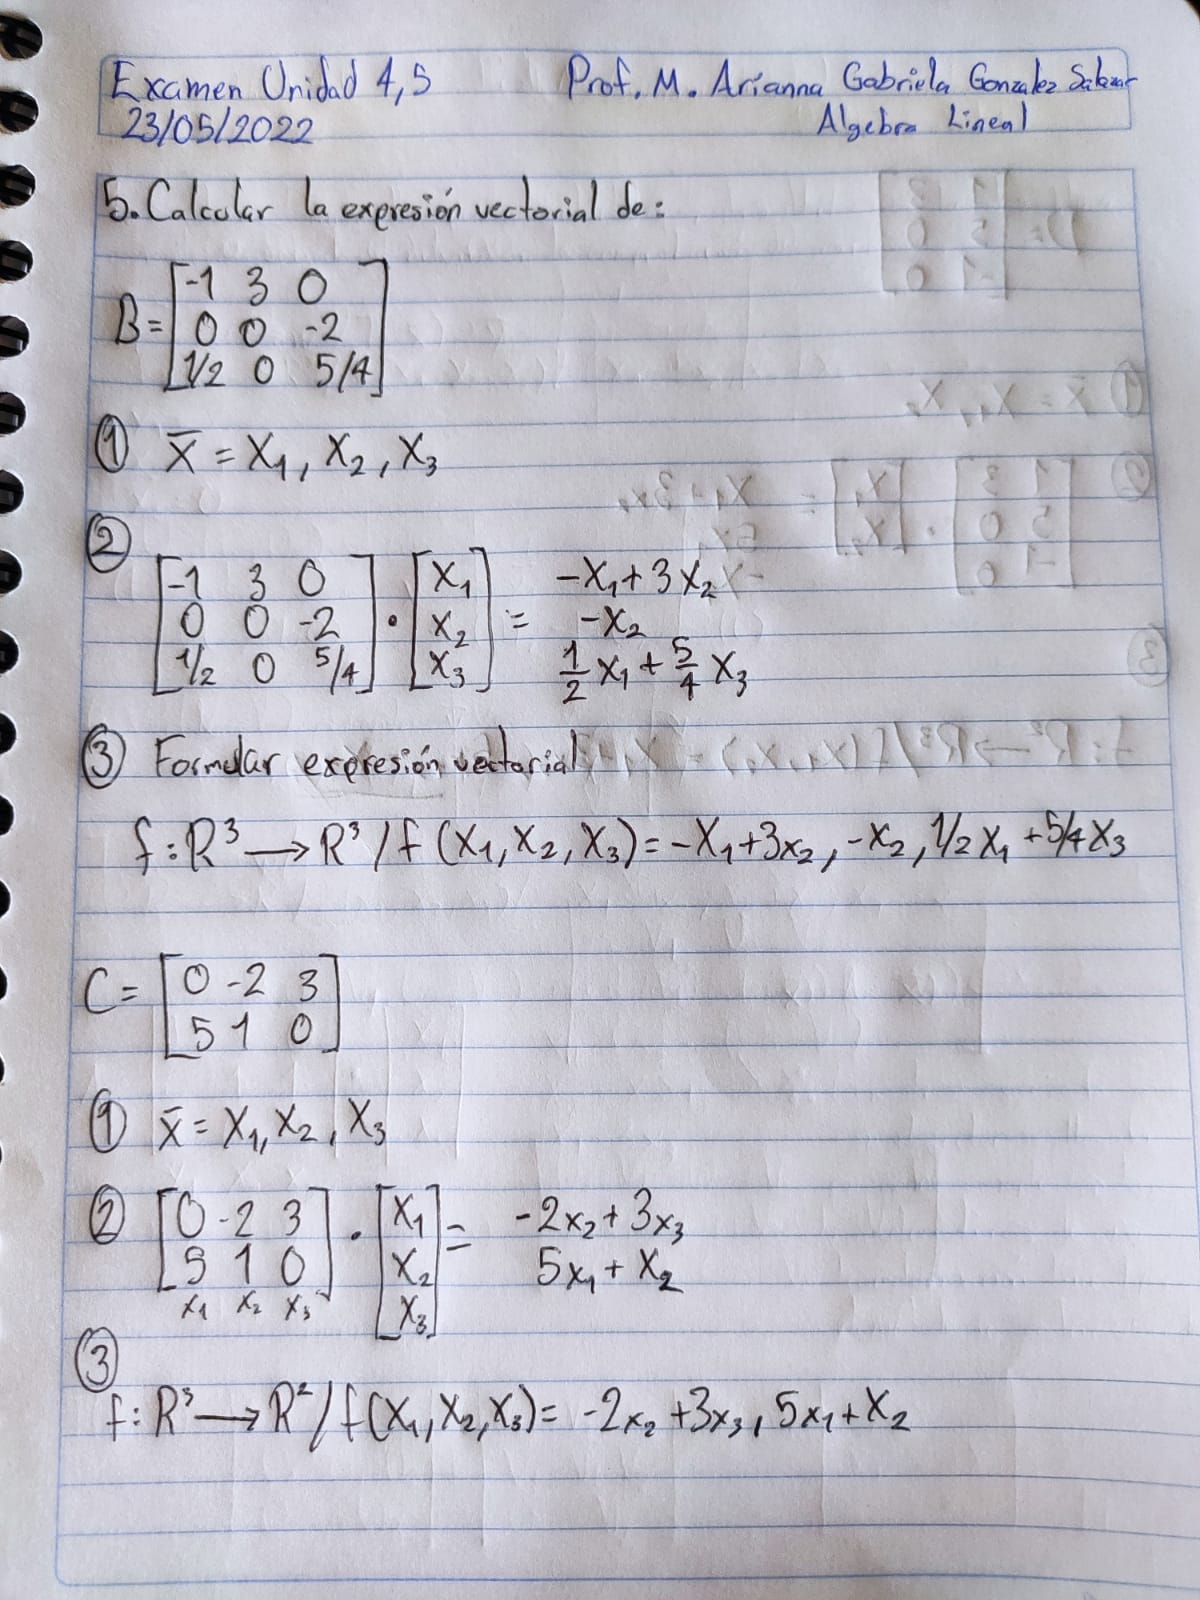 Examen Unidad 4,5 Prof. M. Arianna Gabriela Gonzalez Salazar
23/05/2022 Algebra Lineal
5. Calcular la expresión vectorial de:
B = [-1 3 0
0 0 -2
1/2 0 5/4]
① x̄ = X₁, X₂, X₃
②
[-1 3 0] [X₁] -X₁ + 3X₂
[0 0 -2] • [X₂] = -X₂
[1/2 0 5/4] [X₃] 1/2 X₁ + 5/4 X₃
③ Formular expresión vectorial
f: R³ → R³ / f (X₁, X₂, X₃) = -X₁+3x₂, -X₂, 1/2 X₁ + 5/4 X₃
C = [0 -2 3
5 1 0]
① x̄ = X₁, X₂, X₃
② [0 -2 3] [X₁] = -2x₂ + 3x₃
[5 1 0] • [X₂] 5x₁ + X₂
x₁ x₂ x₃ [X₃]
③
f: R³ → R² / f(X₁, X₂, X₃) = -2x₂ + 3x₃, 5x₁ + X₂